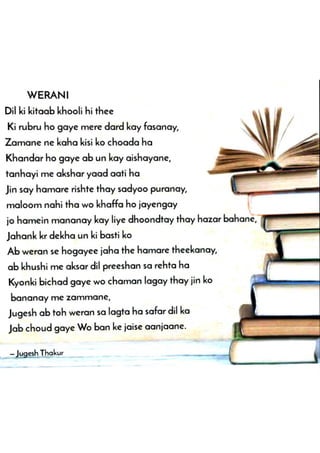 WERANI
Dil ki kitaab khooli hi thee
Ki rubru ho gaye mere dard kay fasanay,
Zamane ne kaha kisi ko choada ha
Khandar ho gaye ab un kay aishayane,
tanhayi me akshar yaad aati ha
Jin say hamare rishte thay sadyoo puranay,
maloom nahi tha wo khaffa ho jayengay
jo hamein mananay kay liye dhoondtay thay hazar bahane,
Jahank kr dekha un ki basti ko
Ab weran se hogayee jaha the hamare theekanay,
ab khushi me aksar dil preeshan sa rehta ha
Kyonki bichad gaye wo chaman lagay thay jin ko
bananay me zammane,
Jugesh ab toh weran sa lagta ha safar dil ka
Jab choud gaye Wo ban ke jaise aanjaane.
– Jugesh Thakur